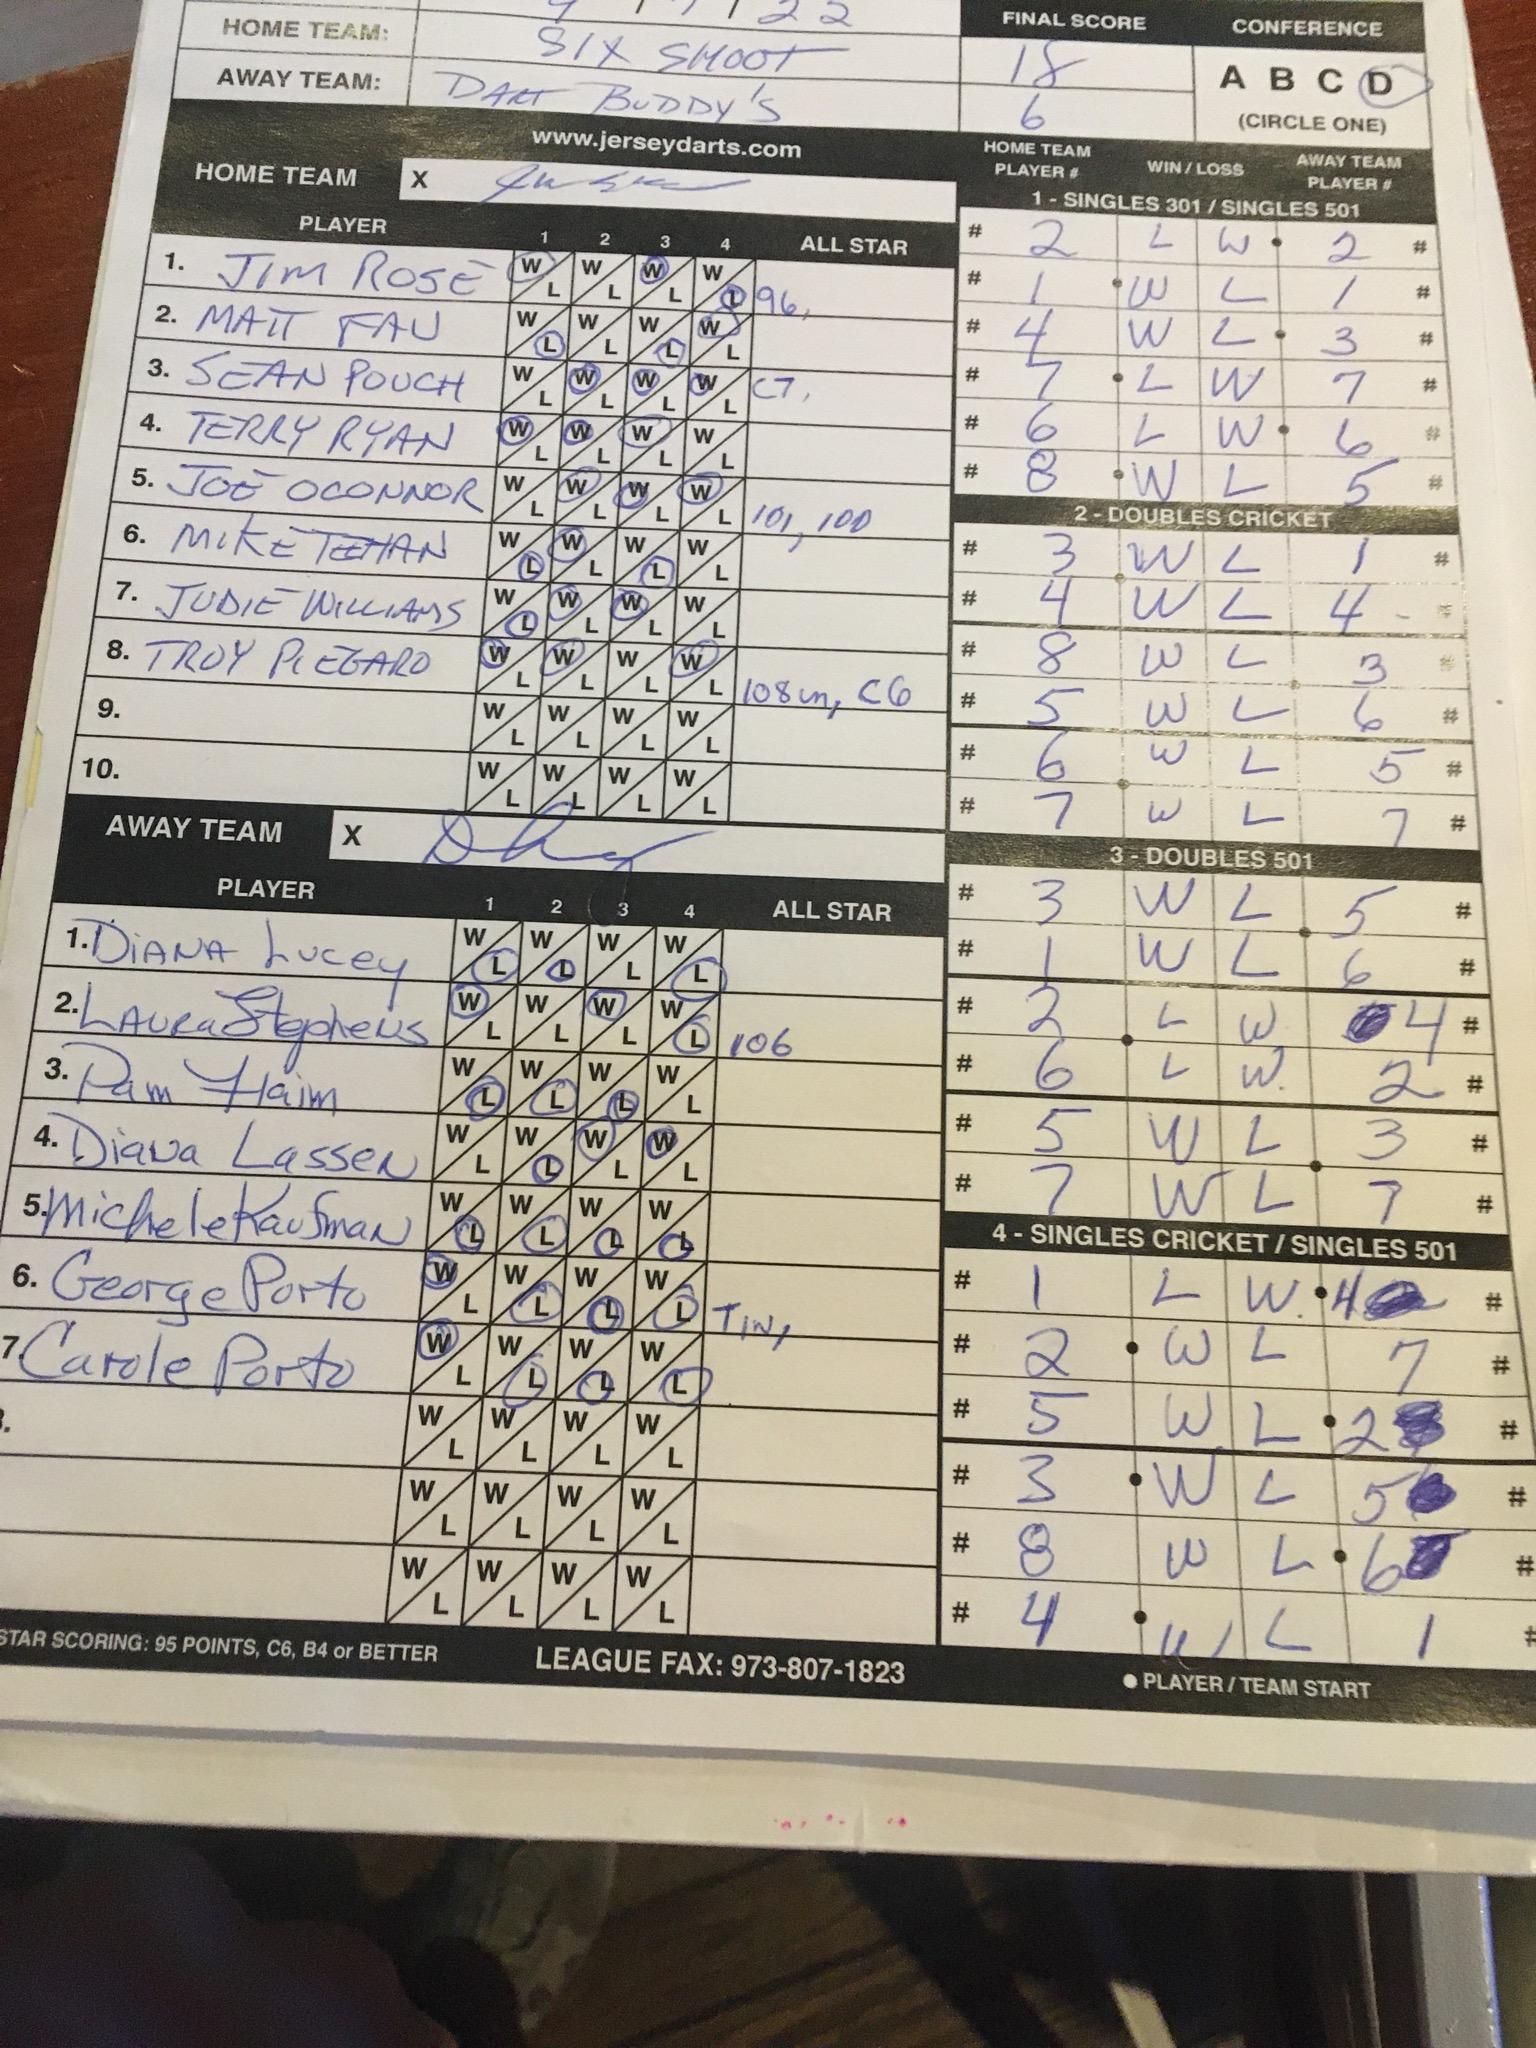 22
HOME TEAM: SIX SHOOT
AWAY TEAM: DART BUDDY'S
FINAL SCORE
18
6
CONFERENCE
A B C D
(CIRCLE ONE)
www.jerseydarts.com
HOME TEAM X
PLAYER 1 2 3 4 ALL STAR
1. JIM ROSE W L W L W L W L 96,
2. MATT FAU W L W L W L W L
3. SEAN POUCH W L W L W L W L C7,
4. TERRY RYAN W L W L W L W L
5. JOE OCONNOR W L W L W L W L 101, 100
6. MIKE TEHAN W L W L W L W L
7. JUDIE WILLIAMS W L W L W L W L
8. TROY PIEGARO W L W L W L W L 108in, C6
9. W L W L W L W L
10. W L W L W L W L
AWAY TEAM X
PLAYER 1 2 3 4 ALL STAR
1. Diana Lucey W L W L W L W L
2. Laura Stephens W L W L W L W L 106
3. Pam Haim W L W L W L W L
4. Diana Lassen W L W L W L W L
5. Michele Kaufman W L W L W L W L
6. George Porto W L W L W L W L TIN,
7. Carole Porto W L W L W L W L
W L W L W L W L
W L W L W L W L
W L W L W L W L
STAR SCORING: 95 POINTS, C6, B4 or BETTER
LEAGUE FAX: 973-807-1823
HOME TEAM PLAYER # WIN / LOSS AWAY TEAM PLAYER #
1 - SINGLES 301 / SINGLES 501
# 2 L W 2 #
# 1 W L 1 #
# 4 W L 3 #
# 7 L W 7 #
# 6 L W 6 #
# 8 W L 5 #
2 - DOUBLES CRICKET
# 3 W L 1 #
# 4 W L 4 #
# 8 W L 3 #
# 5 W L 6 #
# 6 W L 5 #
# 7 W L 7 #
3 - DOUBLES 501
# 3 W L 5 #
# 1 W L 6 #
# 2 L W 4 #
# 6 L W. 2 #
# 5 W L 3 #
# 7 W L 7 #
4 - SINGLES CRICKET / SINGLES 501
# 1 L W. 4 #
# 2 W L 7 #
# 5 W. L 2 #
# 3 W L 5 #
# 8 W L 6 #
# 4 W L 1 #
● PLAYER / TEAM START